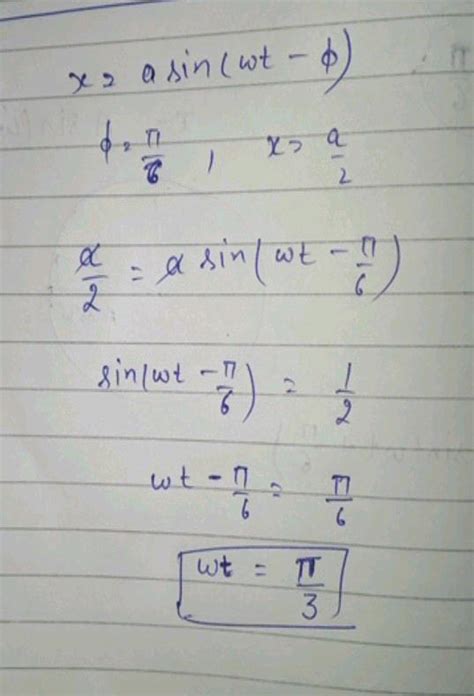 x = a sin(wt - ϕ)
ϕ = π/6 , x = a/2
a/2 = a sin(wt - π/6)
sin(wt - π/6) = 1/2
wt - π/6 = π/6
wt = π/3